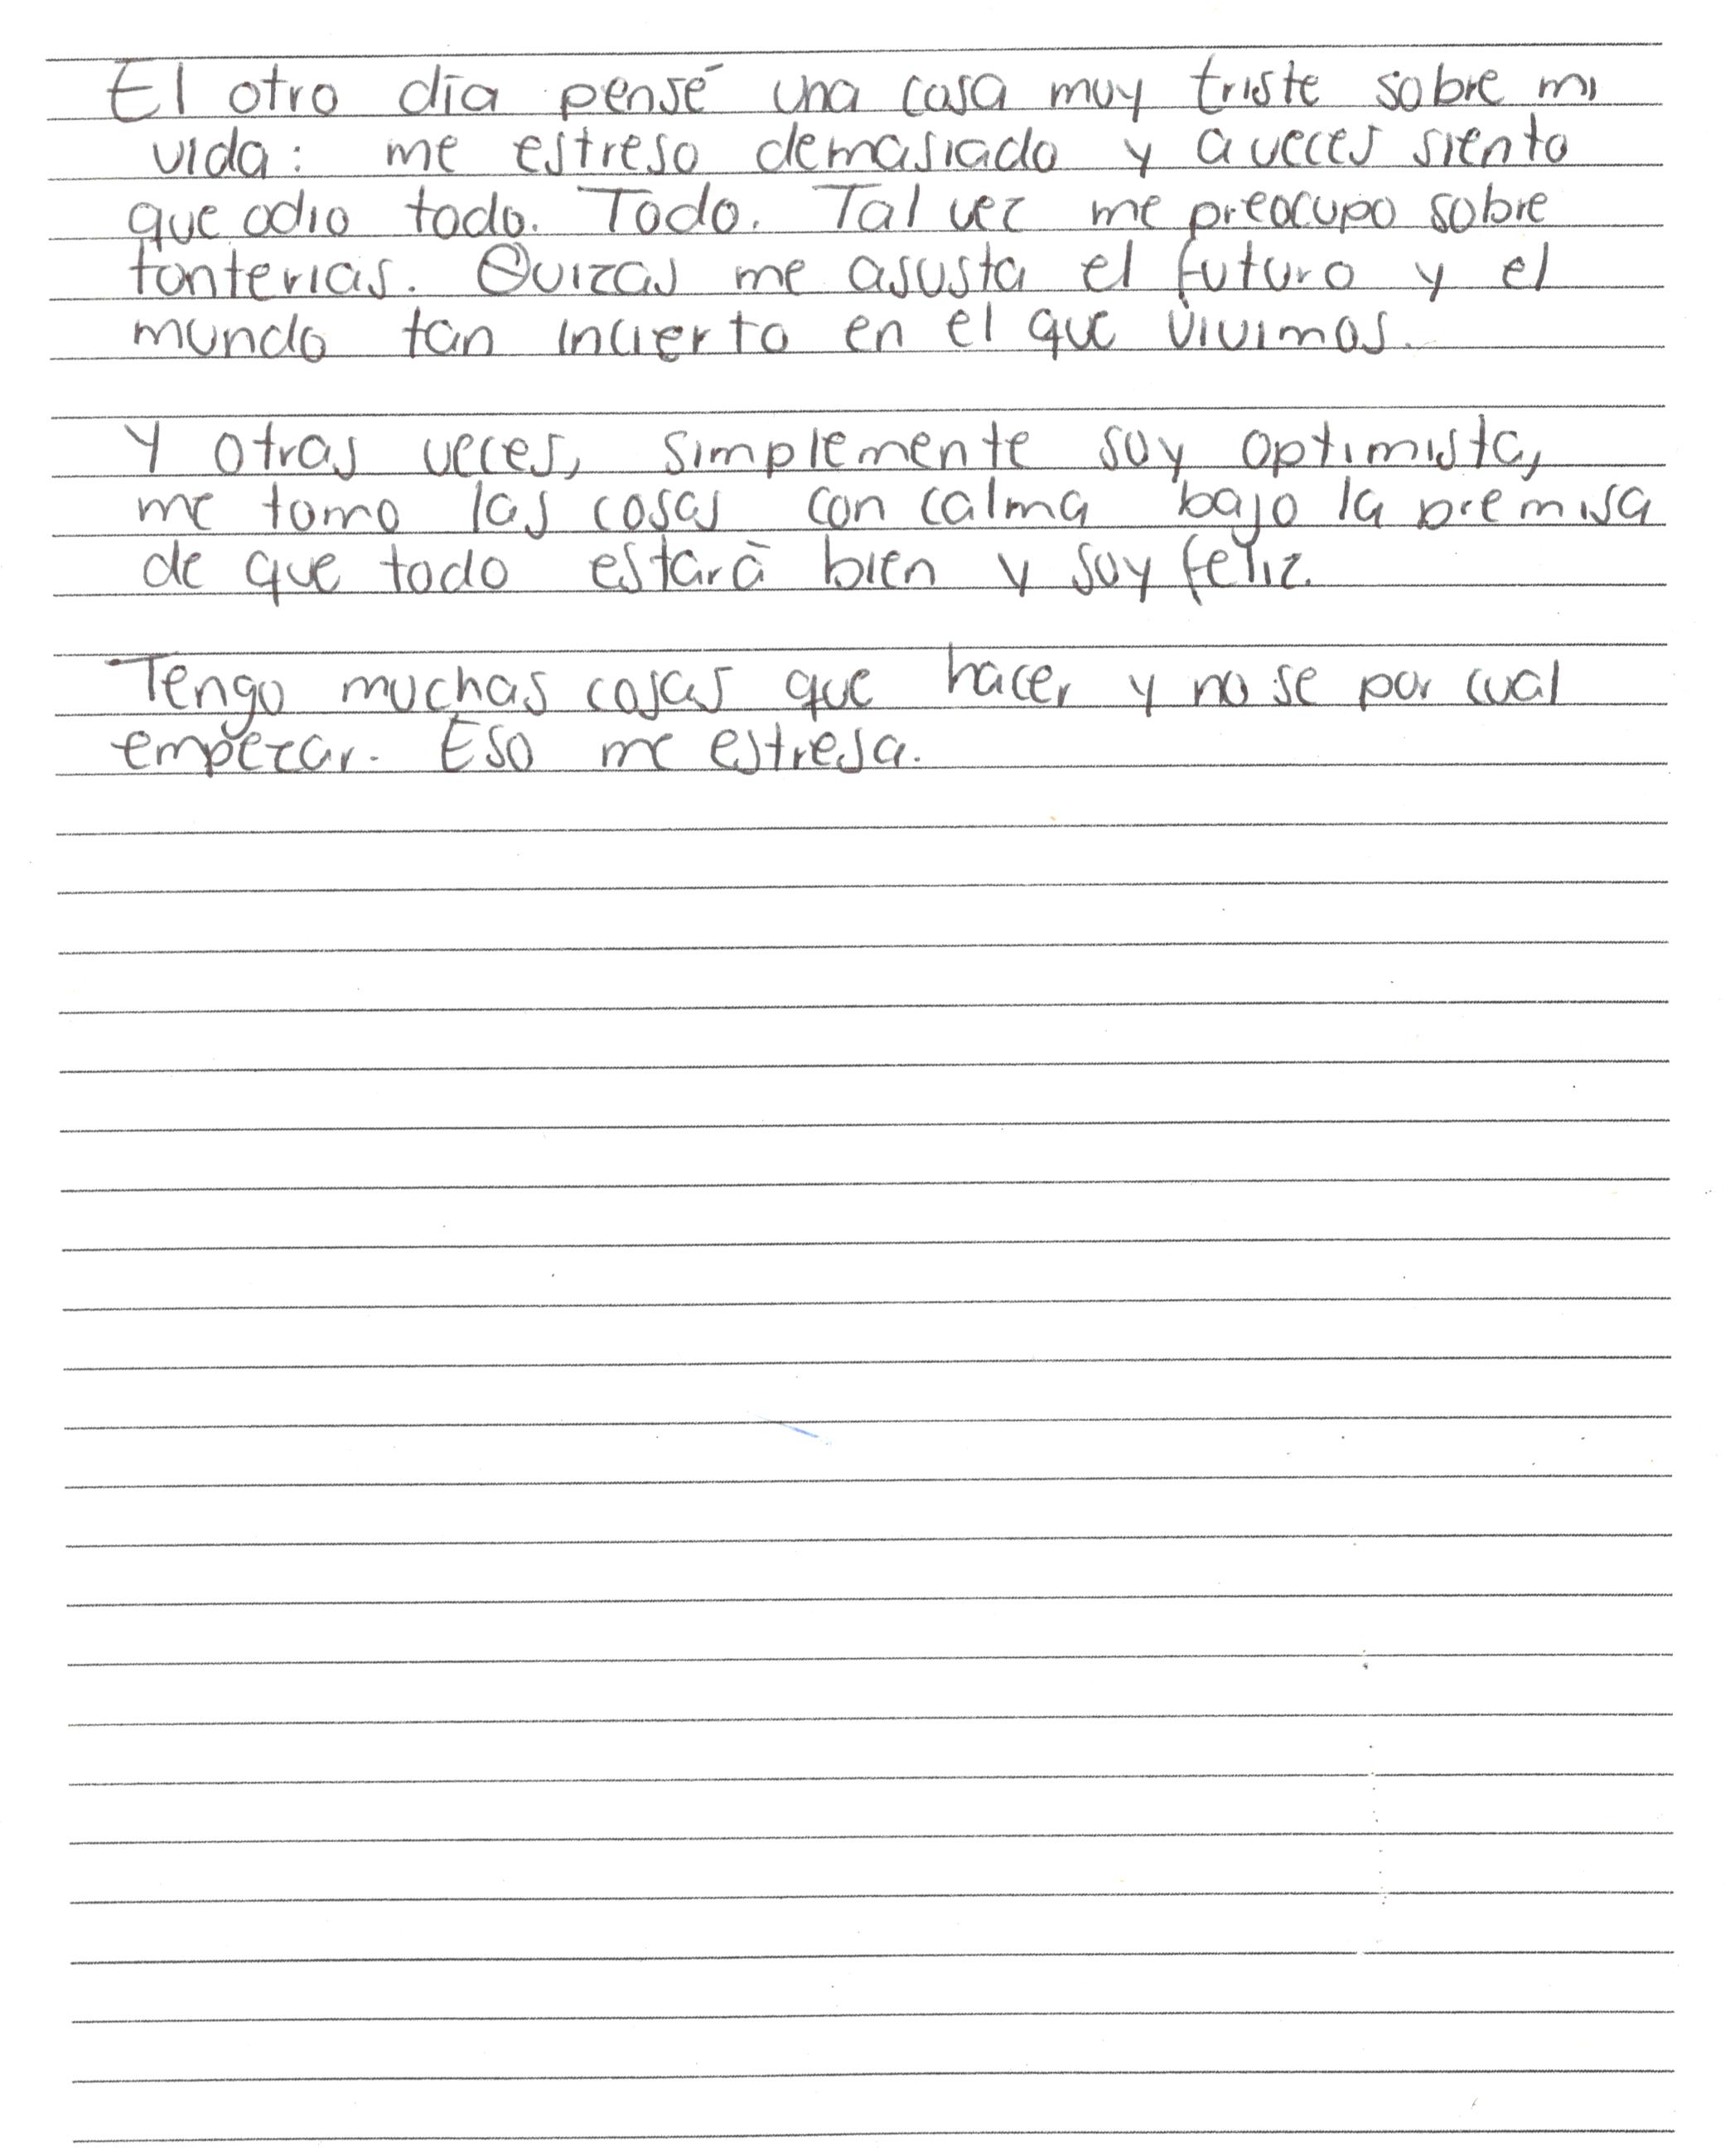 El otro día pensé una cosa muy triste sobre mi
vida: me estreso demasiado y a veces siento
que odio todo. Todo. Tal vez me preocupo sobre
tonterias. Quizas me asusta el futuro y el
mundo tan incierto en el que vivimos.
Y otras veces, simplemente soy optimista,
me tomo las cosas con calma bajo la premisa
de que todo estará bien y soy feliz.
Tengo muchas cosas que hacer y no se por cual
empezar. Eso me estresa.